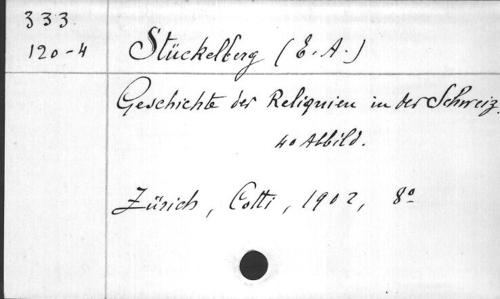 333.
120-4
Stückelberg (E. A.)
Geschichte der Reliquien in der Schweiz.
40 Abbild.
Zürich, Cotti, 1902, 8º